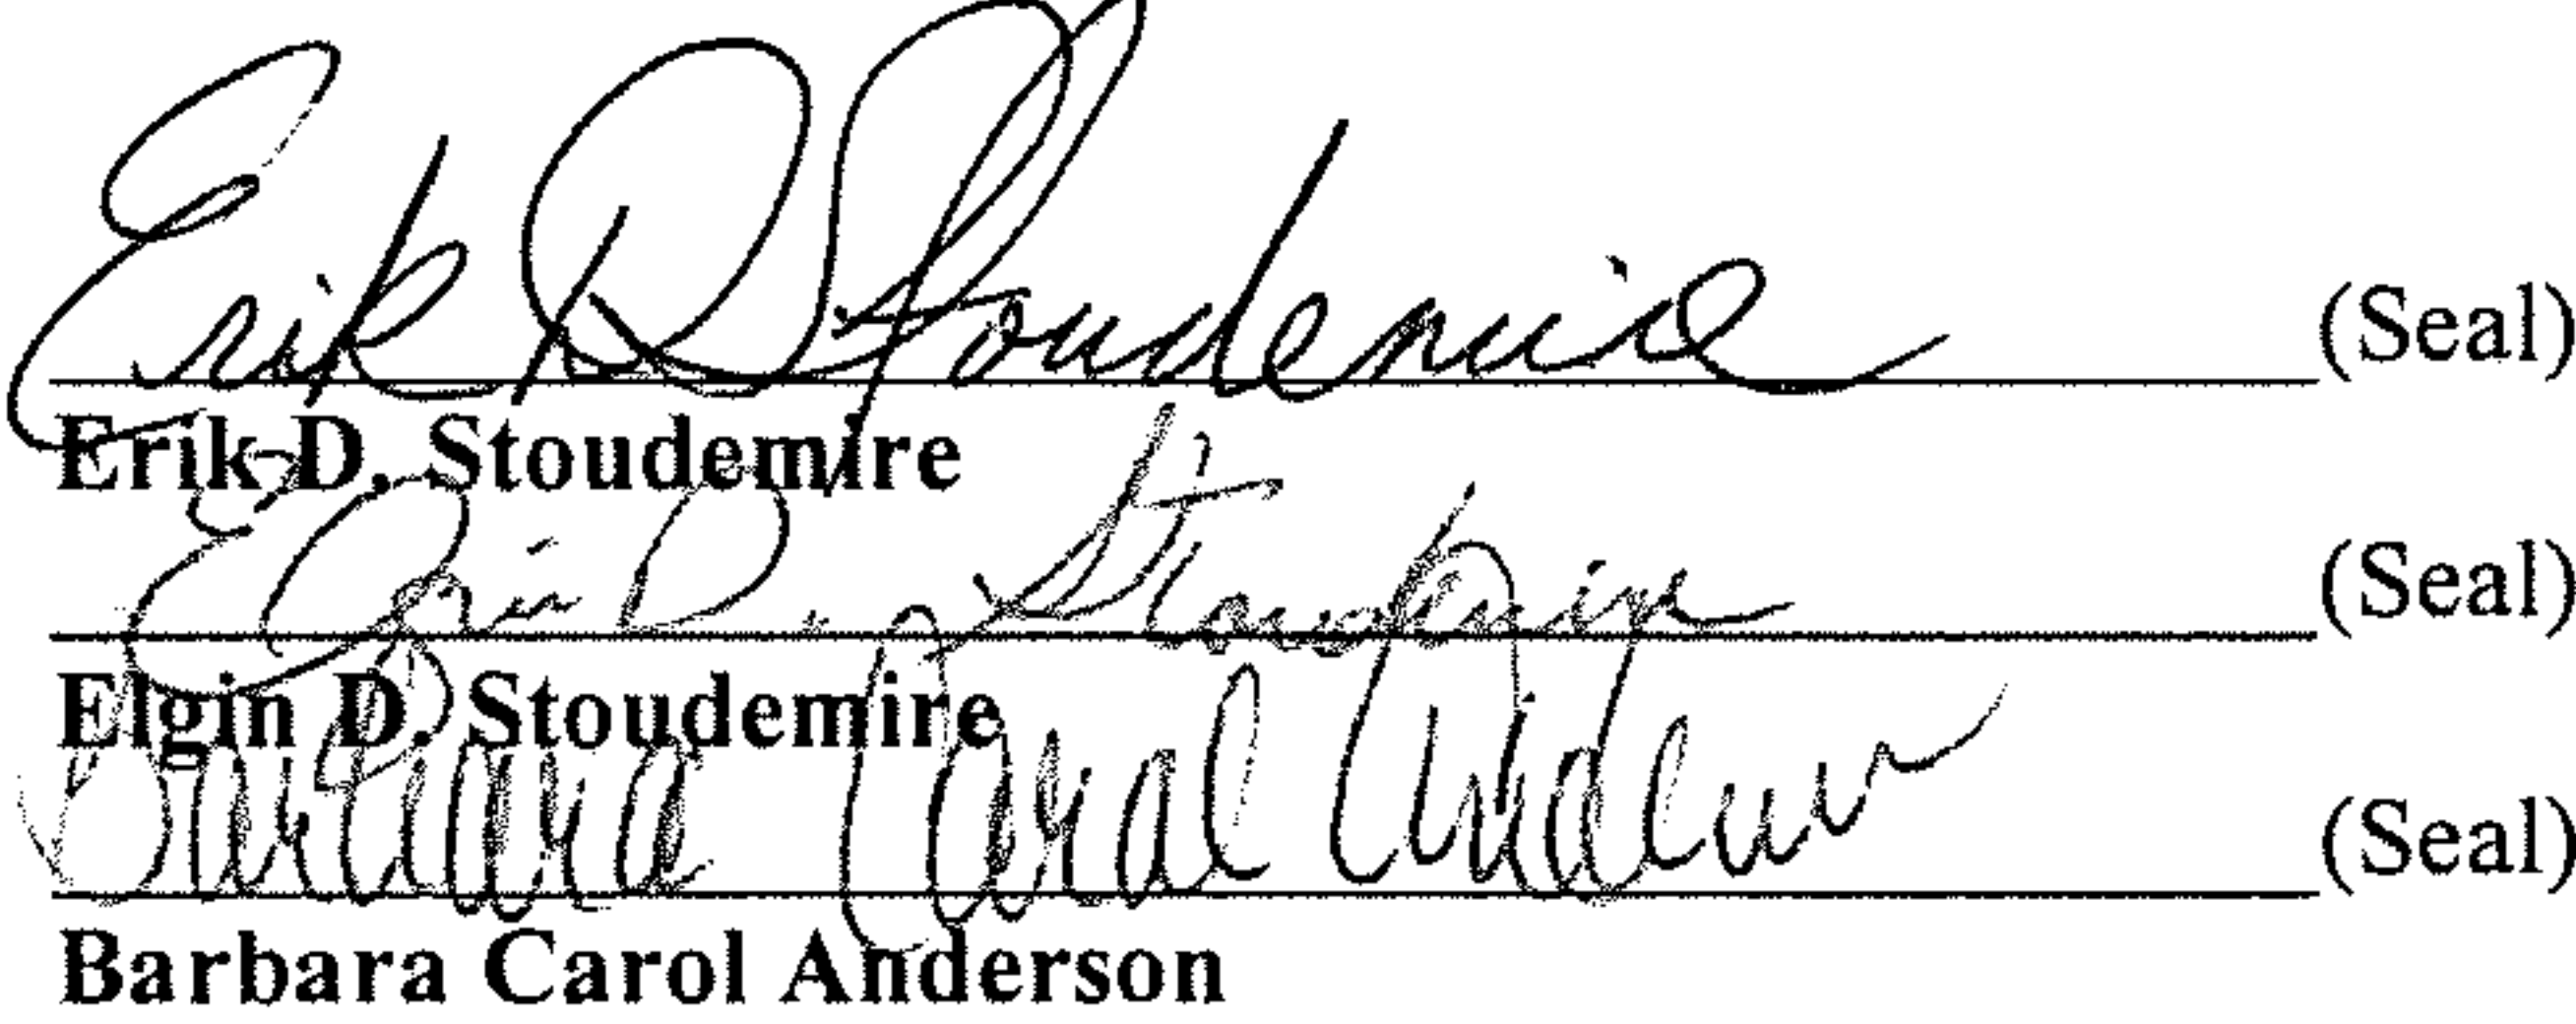 Erik D Stoudemire (Seal)
Erik D. Stoudemire
Elgin D. Stoudemire (Seal)
Elgin D. Stoudemire
Barbara Carol Anderson (Seal)
Barbara Carol Anderson